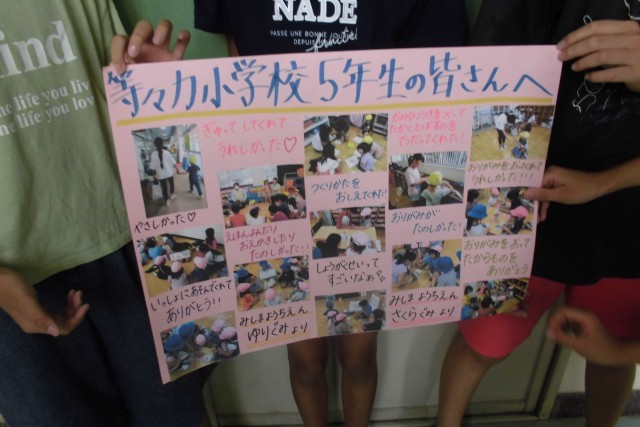 NADE
PASSE UNE BONNE JOURNÉE
DEPUIS
ind
ne life you liv
ne life you love
等々力小学校5年生の皆さんへ
ぎゅってしてくれて
うれしかった♡
やさしかった♡
いっしょにあそんでくれて
ありがとう!!
えほんよんだり
おえかきしたり
たのしかった!!
みしまようちえん
ゆりぐみより
つくりかたを
おしえてくれた!
しょうがくせいって
すごいなぁ
かみひこうきをつくって
たかくとばすのを
てつだってくれた!
おりがみが
たのしかった!
みしまようちえん
さくらぐみより
おりがみをおってくれて
うれしかった!!!
おりがみをおって
たからものを
ありがとう